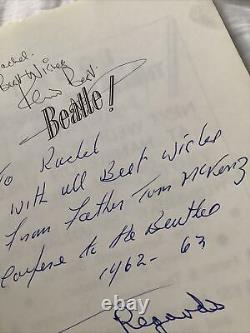 Rachel.
Best Wishes
Pete Best.
Beatle!
To Rachel
With all Best Wishes
From Father Tom McKenzie
Compere to the Beatles
1962-63
Regards